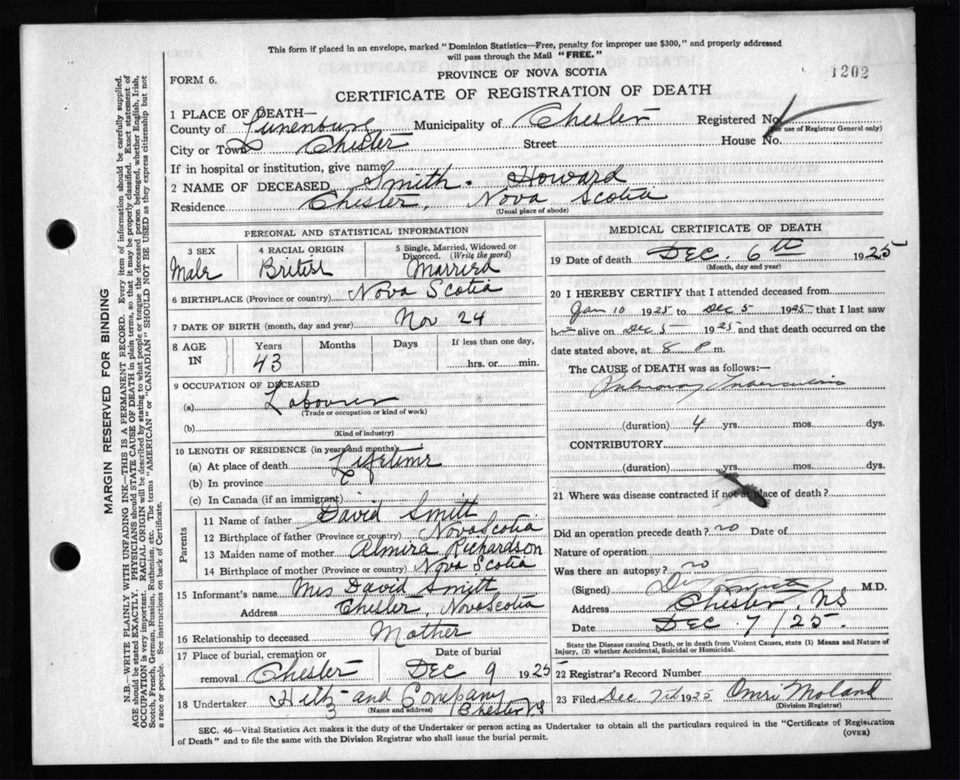 This form if placed in an envelope, marked "Dominion Statistics—Free, penalty for improper use $300," and properly addressed
will pass through the Mail "FREE."
PROVINCE OF NOVA SCOTIA
FORM 6.
1202
CERTIFICATE OF REGISTRATION OF DEATH
1 PLACE OF DEATH—
County of Lunenburg Municipality of Chester Registered No.
(For use of Registrar General only)
City or Town Chester Street House No.
If in hospital or institution, give name
2 NAME OF DECEASED Smith. Howard
Residence Chester, Nova Scotia
(Usual place of abode)
PERSONAL AND STATISTICAL INFORMATION
3 SEX 4 RACIAL ORIGIN 5 Single, Married, Widowed or
Divorced. (Write the word)
Male British Married
6 BIRTHPLACE (Province or country) Nova Scotia
7 DATE OF BIRTH (month, day and year) Nov 24
8 AGE IN Years Months Days If less than one day,
43 hrs. or min.
9 OCCUPATION OF DECEASED
(a) Labourer
(Trade or occupation or kind of work)
(b)
(Kind of industry)
10 LENGTH OF RESIDENCE (in years and months)
(a) At place of death Lifetime
(b) In province
(c) In Canada (if an immigrant)
Parents
11 Name of father David Smith
12 Birthplace of father (Province or country) Nova Scotia
13 Maiden name of mother Almira Richardson
14 Birthplace of mother (Province or country) Nova Scotia
15 Informant's name Mrs David Smith
Address Chester, Nova Scotia
16 Relationship to deceased Mother
17 Place of burial, cremation or Date of burial
removal Chester Dec 9 1925
18 Undertaker and Company
(Name and address) Chester NS
MEDICAL CERTIFICATE OF DEATH
19 Date of death Dec. 6th 1925
(Month, day and year)
20 I HEREBY CERTIFY that I attended deceased from
Jan 10 1925 to Dec 5 1925 that I last saw
h alive on Dec 5 1925 and that death occurred on the
date stated above, at 8 P m.
The CAUSE of DEATH was as follows:—
Pulmonary Tuberculosis
(duration) 4 yrs. mos. dys.
CONTRIBUTORY
(duration) yrs. mos. dys.
21 Where was disease contracted if not at place of death?
Did an operation precede death? no Date of
Nature of operation
Was there an autopsy? no
(Signed) M.D.
Address Chester, NS
Date Dec 7/25.
State the Disease causing Death, or in death from Violent Causes, state (1) Means and Nature of
Injury, (2) whether Accidental, Suicidal or Homicidal.
22 Registrar's Record Number
23 Filed Dec 7th 1925 Omri Moland
(Division Registrar)
SEC. 46—Vital Statistics Act makes it the duty of the Undertaker or person acting as Undertaker to obtain all the particulars required in the "Certificate of Registration
of Death" and to file the same with the Division Registrar who shall issue the burial permit.
(OVER)
MARGIN RESERVED FOR BINDING
N.B.—WRITE PLAINLY WITH UNFADING INK—THIS IS A PERMANENT RECORD. Every item of information should be carefully supplied.
AGE should be stated EXACTLY. PHYSICIANS should STATE CAUSE OF DEATH in plain terms, so that it may be properly classified. Exact statement of
OCCUPATION is very important. RACIAL ORIGIN will be described by stating to what people or tongue the deceased person belonged, whether English, Irish,
Scotch, French, German, Russian, Ruthenian, etc. The terms "AMERICAN" or "CANADIAN" SHOULD NOT BE USED as they express citizenship but not
a race or people. See instructions on back of Certificate.